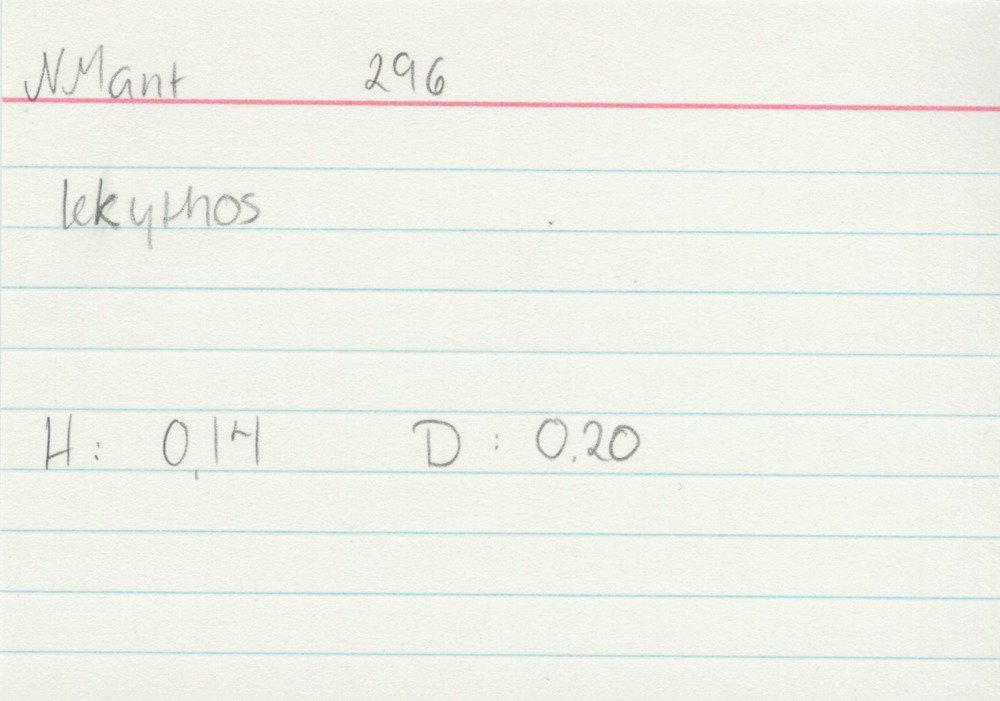 NMant 296
lekythos
H: 0,14 D: 0.20